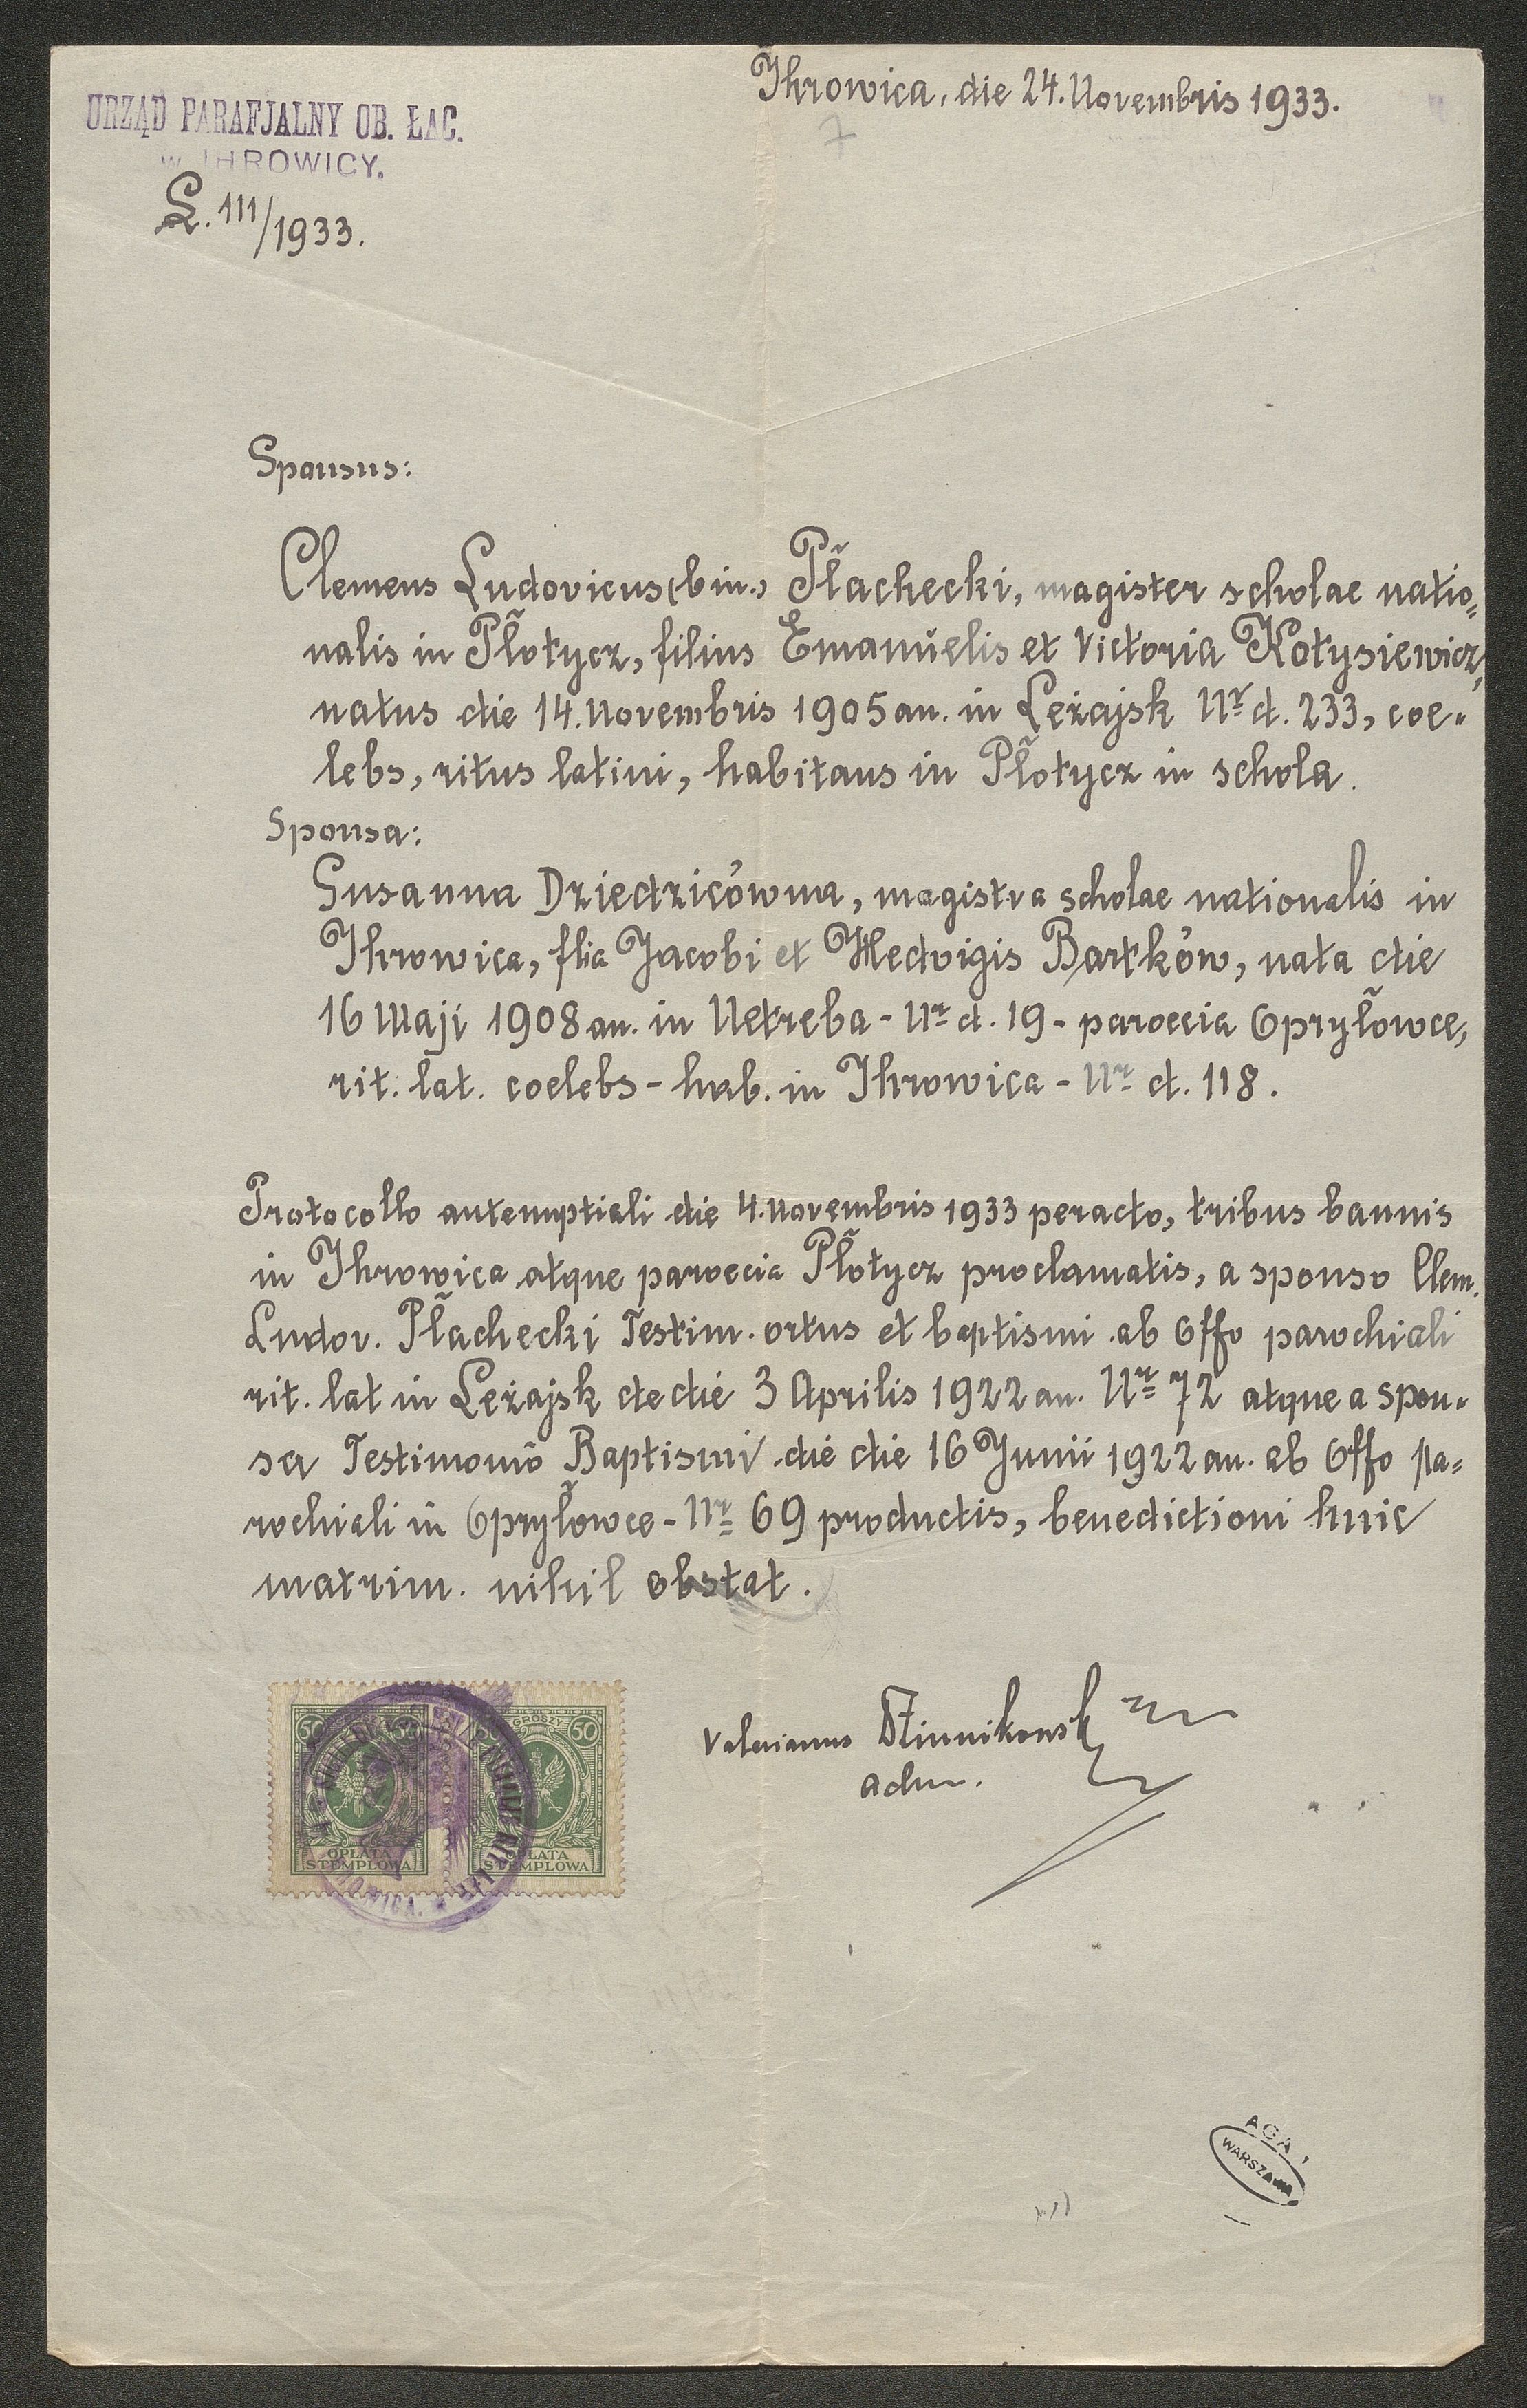 Ihrowica, die 24. Novembris 1933.
7
URZĄD PARAFJALNY OB. ŁAC.
w IHROWICY.
L. 111/1933.
Sponsus:
Clemens Ludovicus (bin.) Płachecki, magister scholae natio=
nalis in Płotycz, filius Emanuelis et Victoria Kotysiewicz,
natus die 14. Novembris 1905 an. in Leżajsk Nr d. 233, coe=
lebs, ritus latini, habitans in Płotycz in schola.
Sponsa:
Susanna Dziedzicówna, magistra scholae nationalis in
Ihrowica, flia Jacobi et Hedvigis Bartków, nata die
16 Maji 1908 an. in Netreba - Nr d. 19 - paroecia Opryłowce,
rit. lat. coelebs - hab. in Ihrowica - Nr d. 118.
Protocollo antenuptiali die 4. Novembris 1933 peracto, tribus bannis
in Ihrowica atque paroecia Płotycz proclamatis, a sponso Clem.
Ludov. Płachecki Testim. ortus et baptismi ab Offo parochiali
rit. lat in Leżajsk de die 3 Aprilis 1922 an. Nr 72 atque a spon=
sa Testimonio Baptismi die die 16 Junii 1922 an. ab Offo pa=
rochiali in Opryłowce - Nr 69 productis, benedictioni huic
matrim. nihil obstat.
Valerianus
adm.
50 GROSZY 50
OPŁATA
STEMPLOWA
OPŁATA
STEMPLOWA
AGAD
WARSZAWA